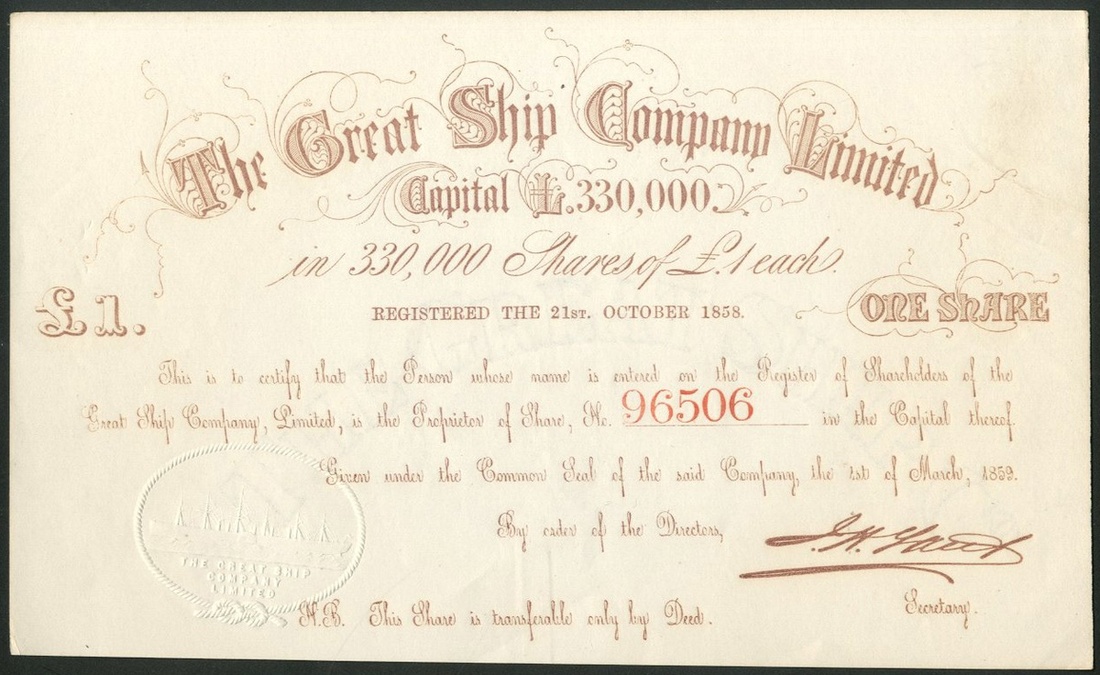 The Great Ship Company Limited
Capital £.330,000.
in 330,000 Shares of £.1 each.
£1.
REGISTERED THE 21ST. OCTOBER 1858.
ONE ShARE
This is to certify that the Person whose name is entered on the Register of Shareholders of the
Great Ship Company, Limited, is the Proprietor of Share, No. 96506 in the Capital thereof.
Given under the Common Seal of the said Company, the 1st of March, 1859.
By order of the Directors,
THE GREAT SHIP
COMPANY
LIMITED
Secretary.
N.B. This Share is transferable only by Deed.